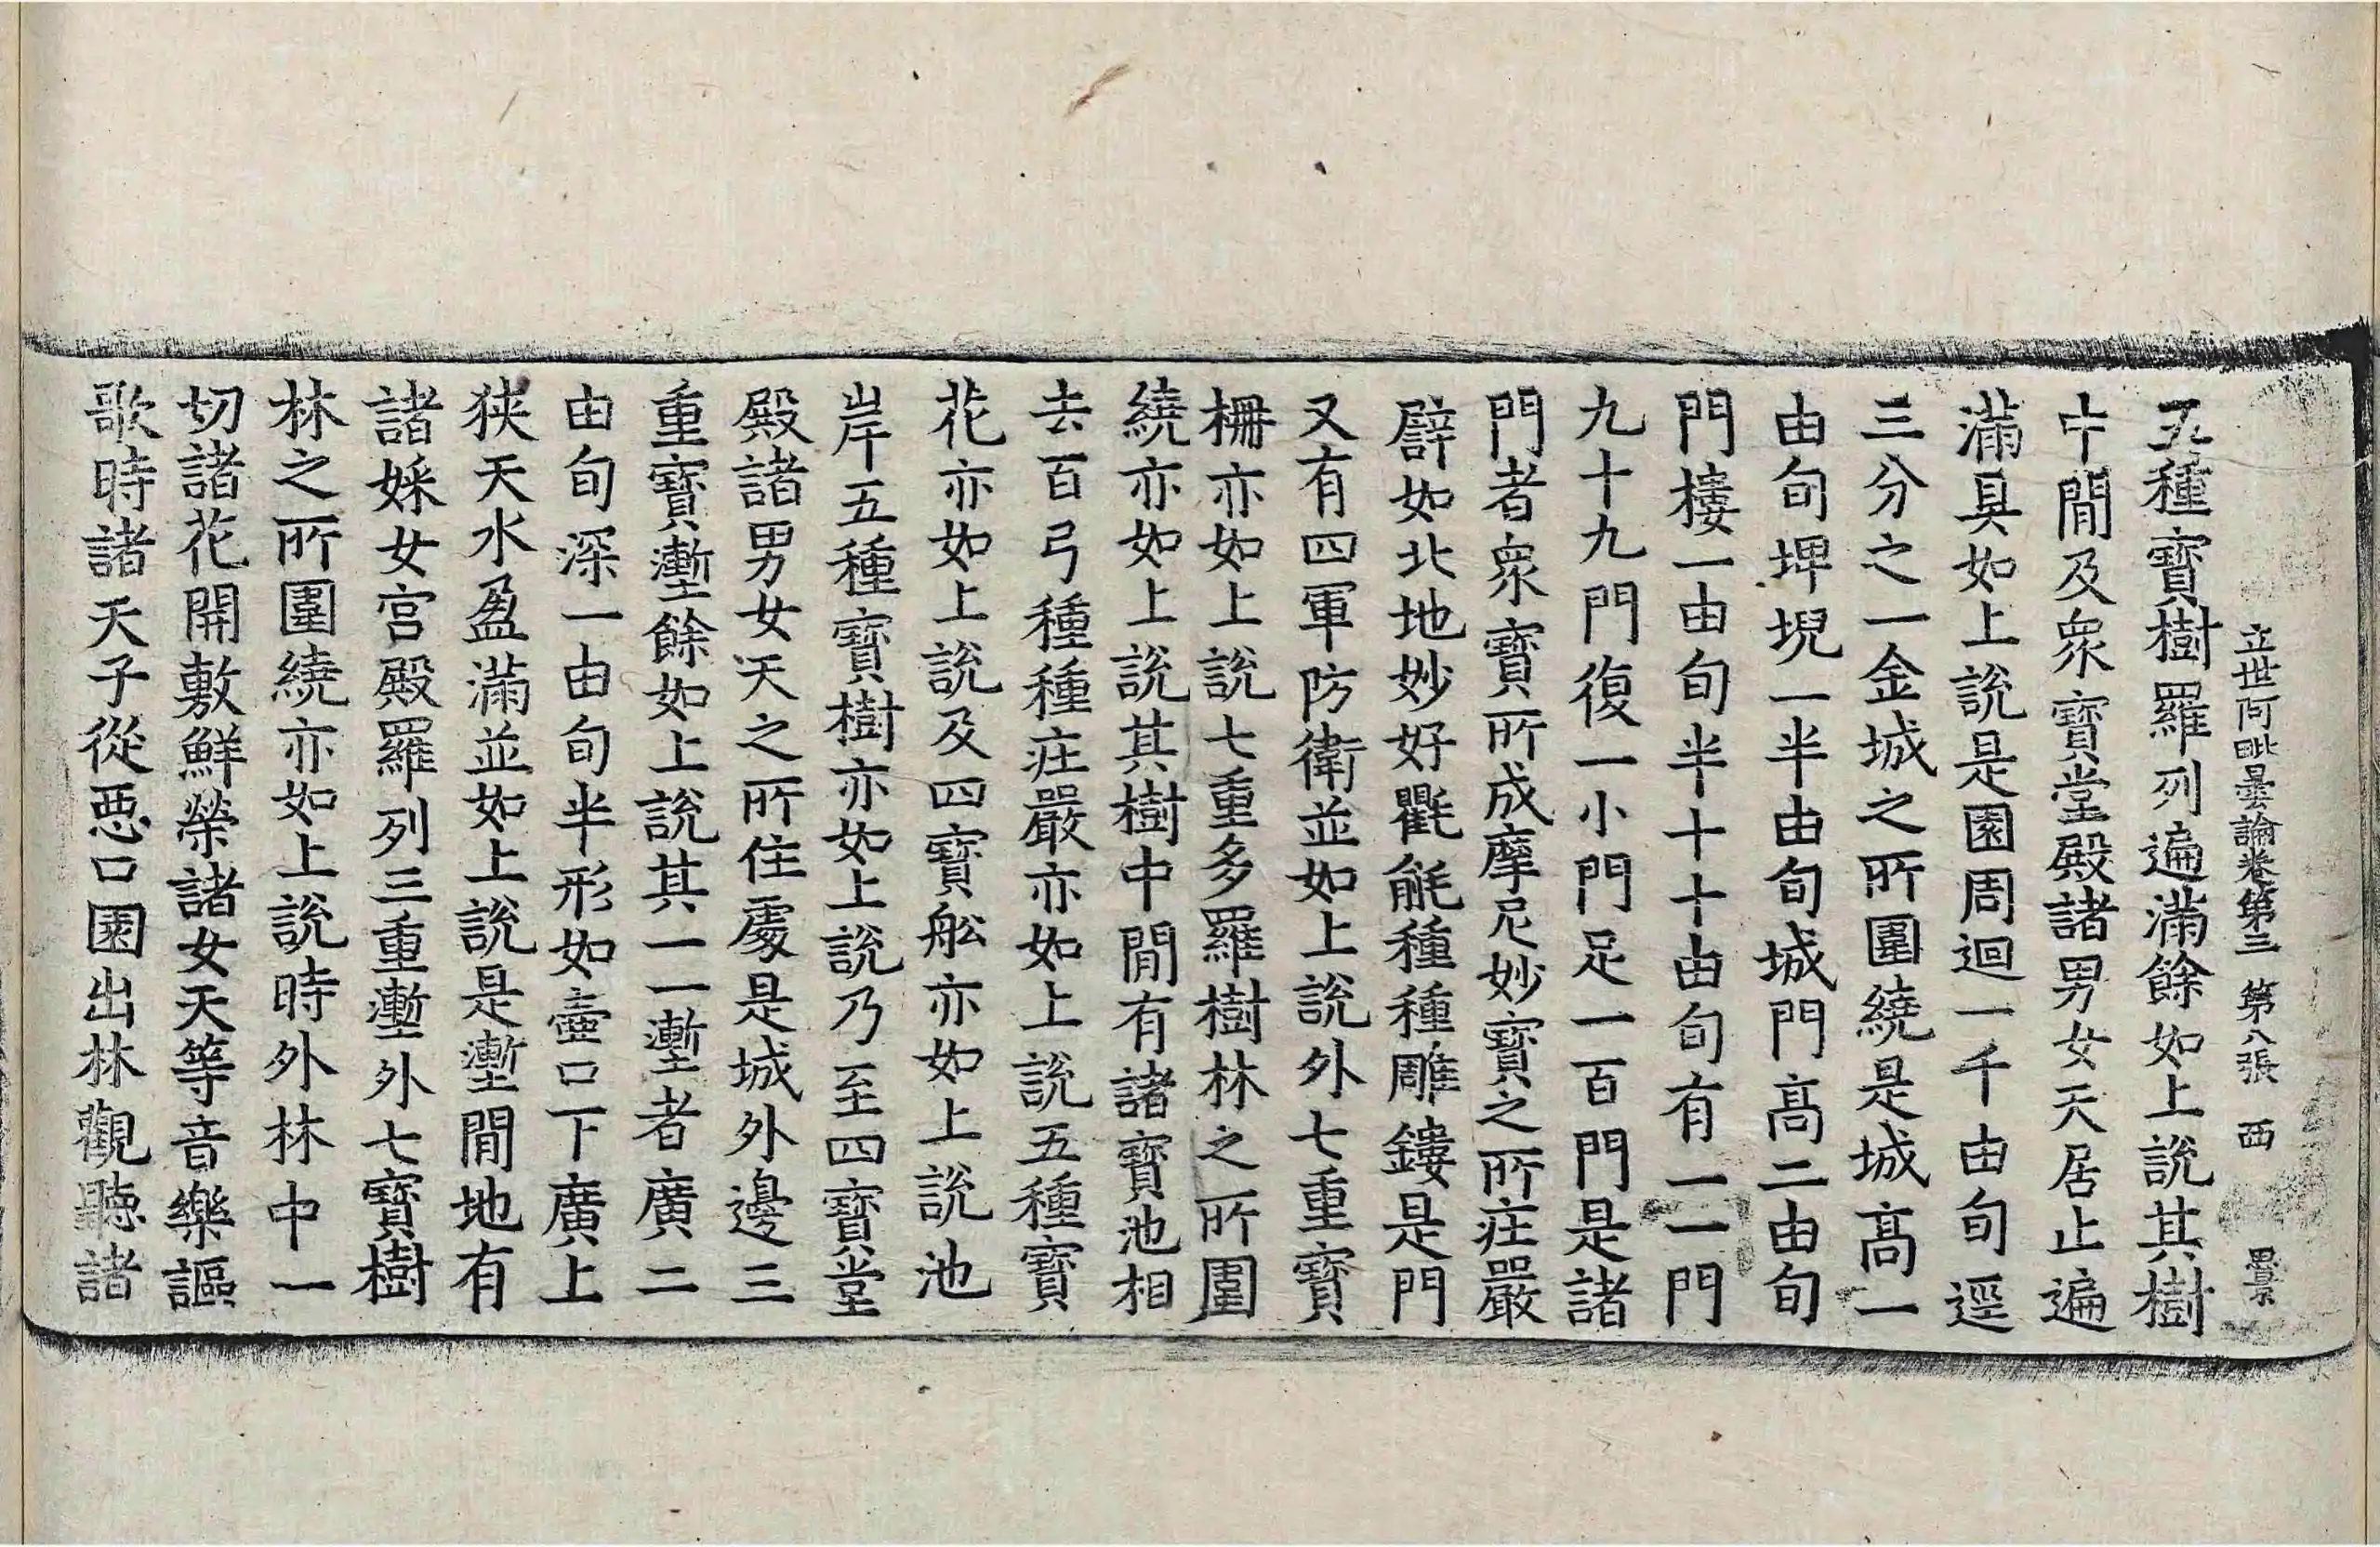 立世阿毗曇論卷第三 第八張 西
五種寶樹羅列遍滿餘如上說其樹
中間及衆寶堂殿諸男女天居止遍
滿具如上說是園周迴一千由旬逕
三分之一金城之所圍繞是城高一
由旬埤堄一半由旬城門高二由旬
門樓一由旬半十十由旬有一一門
九十九門復一小門足一百門是諸
門者衆寶所成摩尼妙寶之所莊嚴
譬如北地妙好氍毹種種雕鏤是門
又有四軍防衛並如上說外七重寶
柵亦如上說七重多羅樹林之所圍
繞亦如上說其樹中間有諸寶池相
去百弓種種莊嚴亦如上說五種寶
花亦如上說及四寶舩亦如上說池
岸五種寶樹亦如上說乃至四寶堂
殿諸男女天之所住處是城外邊三
重寶壍餘如上說其一一壍者廣二
由旬深一由旬半形如壺口下廣上
狹天水盈滿並如上說是壍間地有
諸婇女宮殿羅列三重壍外七寶樹
林之所圍繞亦如上說時外林中一
切諸花開敷鮮榮諸女天等音樂謳
歌時諸天子從惡口園出林觀聽諸